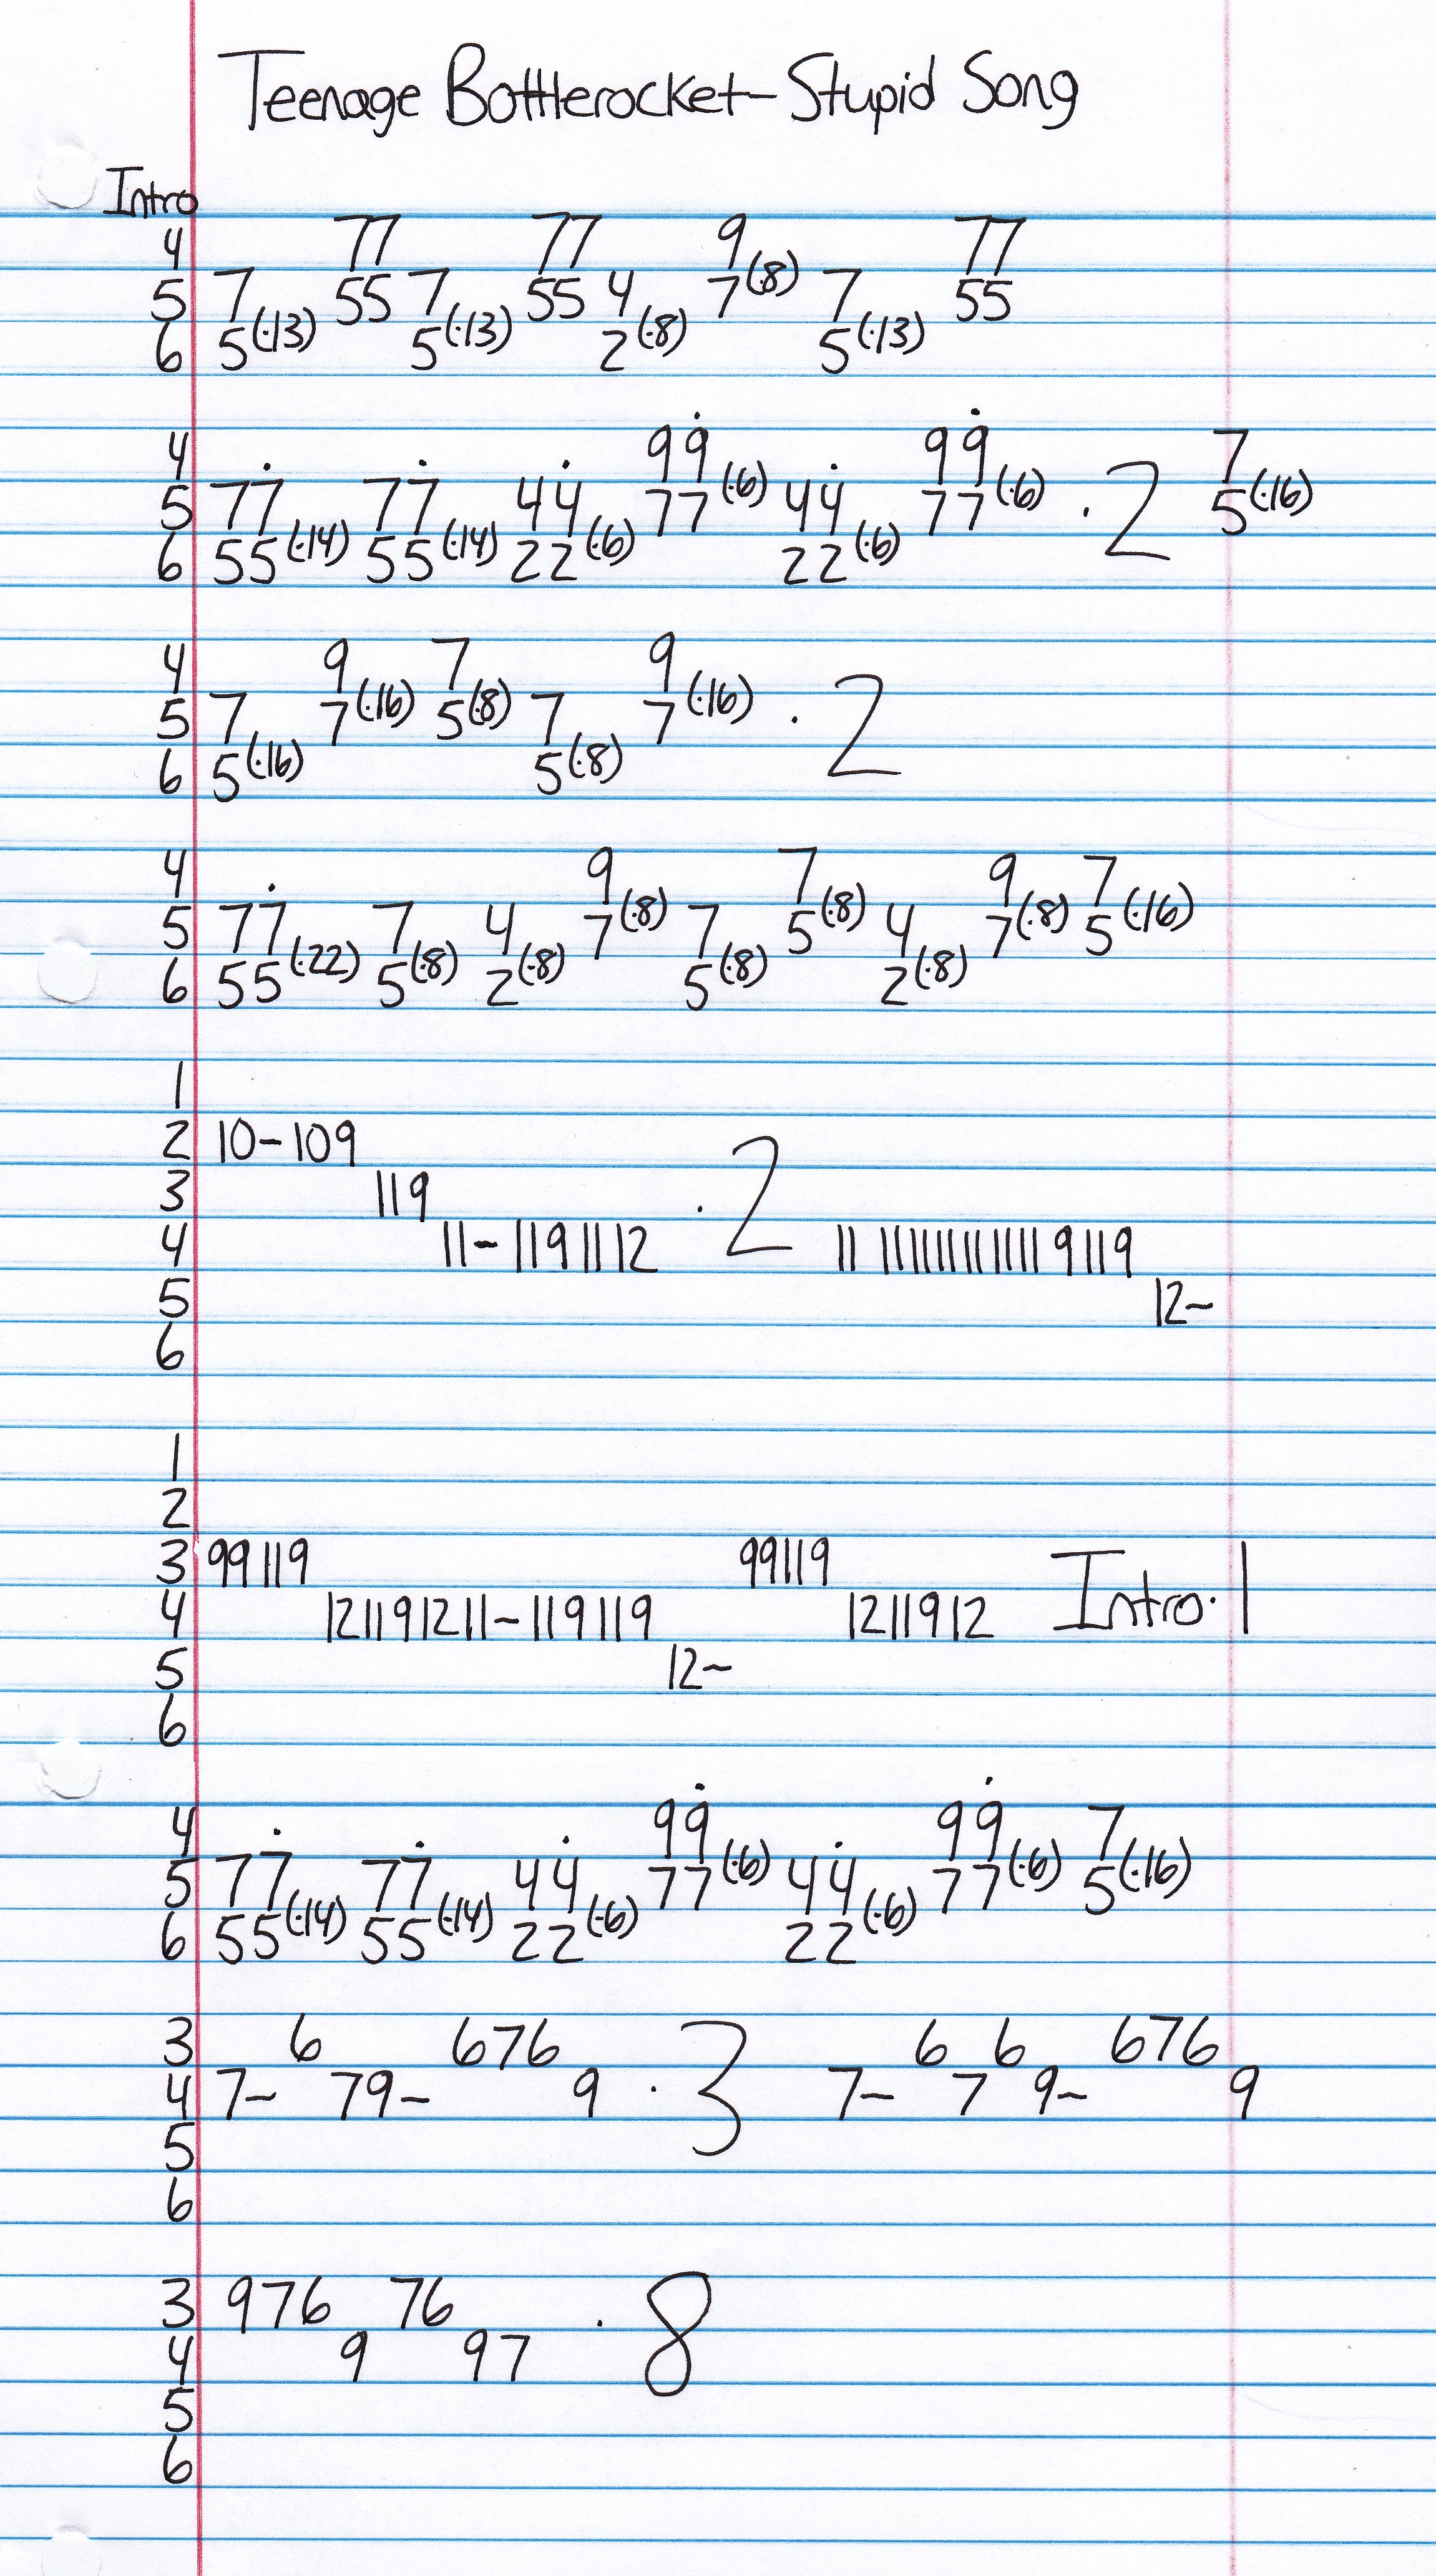 Teenage Bottlerocket - Stupid Song
Intro
4 77 77 9 77
5 7 55 7 55 4 7(·8) 7 55
6 5(·13) 5(·13) 2(·8) 5(·13)
4 99̇ 99̇ 7
5 77̇ 77̇ 44̇ 77(·6) 44̇ 77(·6) · 2 5(·16)
6 55(·14) 55(·14) 22(·6) 22(·6)
4 9 7 9
5 7 7(·16) 5(·8) 7 7(·16) · 2
6 5(·16) 5(·8)
4 9 7 9 7
5 77̇ 7 4 7(·8) 7 5(·8) 4 7(·8) 5(·16)
6 55(·22) 5(·8) 2(·8) 5(·8) 2(·8)
1
2 10-109
3 119 · 2
4 11-1191112 11 11111111111 9 119
5 12~
6
1
2
3 99119 99119 Intro·1
4 121191211-119119 1211912
5 12~
6
4 99̇ 99̇ 7
5 77̇ 77̇ 44̇ 77(·6) 44̇ 77(·6) 5(·16)
6 55(·14) 55(·14) 22(·6) 22(·6)
3 6 676 · 3 6 6 676
4 7- 79- 9 7- 7 9- 9
5
6
3 976 76 · 8
4 9 97
5
6